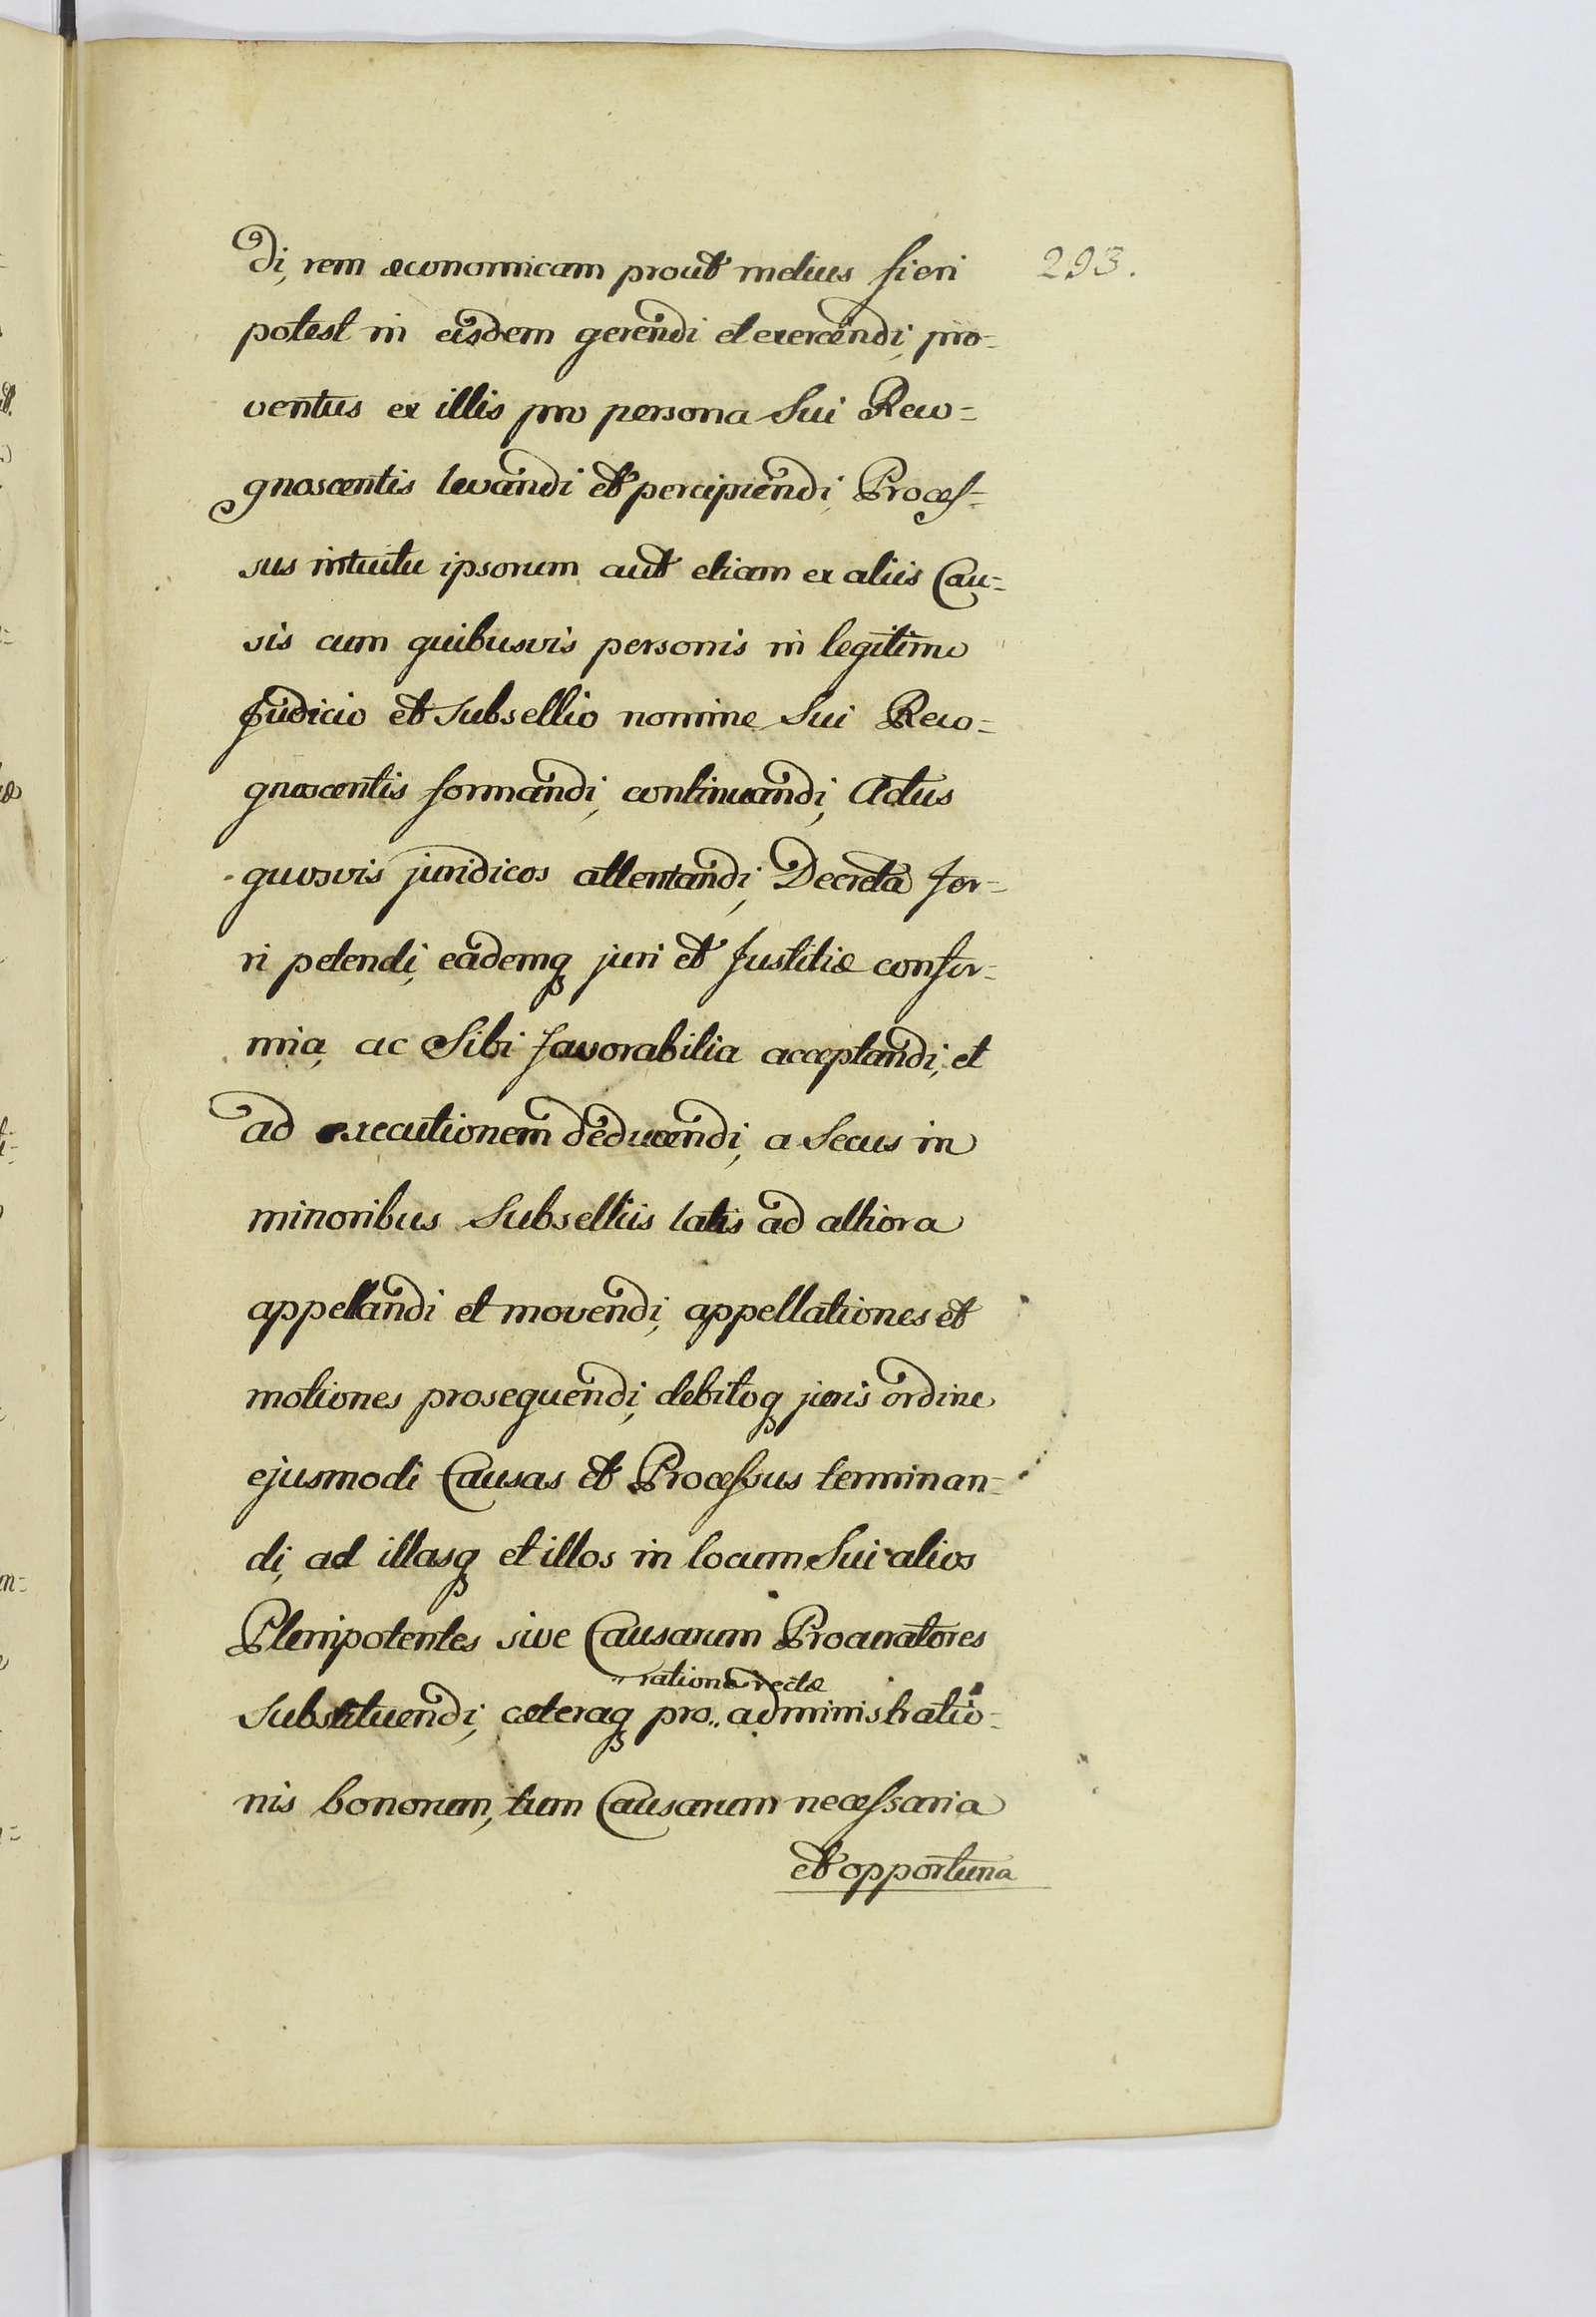 di, rem œconomicam prout melius fieri
293.
potest in eisdem gerendi et exercendi, pro=
ventus ex illis pro persona Sui Reco=
gnoscentis levandi et percipiendi, Proces=
sus intuitu ipsorum aut etiam ex aliis Cau=
sis cum quibusvis personis in legitimo
Judicio et Subsellio nomine Sui Reco=
gnoscentis formandi, continuandi, Actus
quosvis juridicos attentandi, Decreta fer=
ri petendi, eademq juri et Justitiæ confor=
mia, ac Sibi favorabilia acceptandi, et
ad executionem deducendi, a Secus in
minoribus Subselliis latis ad altiora
appellandi et movendi, appellationes et
motiones prosequendi, debitoq juris ordine
ejusmodi Causas et Processus terminan=
di, ad illasq et illos in locum Sui alios
Plenipotentes sive Causarum Procuratores
ratione rectæ
Substituendi, cæteraq pro administratio=
nis bonorum, tum Causarum necessaria
et opportuna